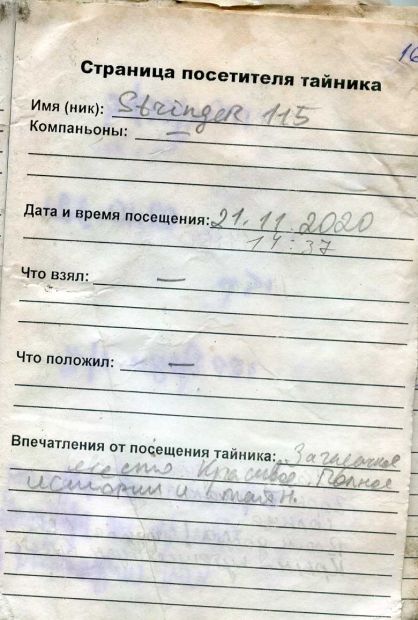 16
Страница посетителя тайника
Имя (ник): Stringer 115
Компаньоны: —
Дата и время посещения: 21.11.2020
14:37
Что взял: —
Что положил: —
Впечатления от посещения тайника: Загадочное
место Красивое Полное
истории и тайн.